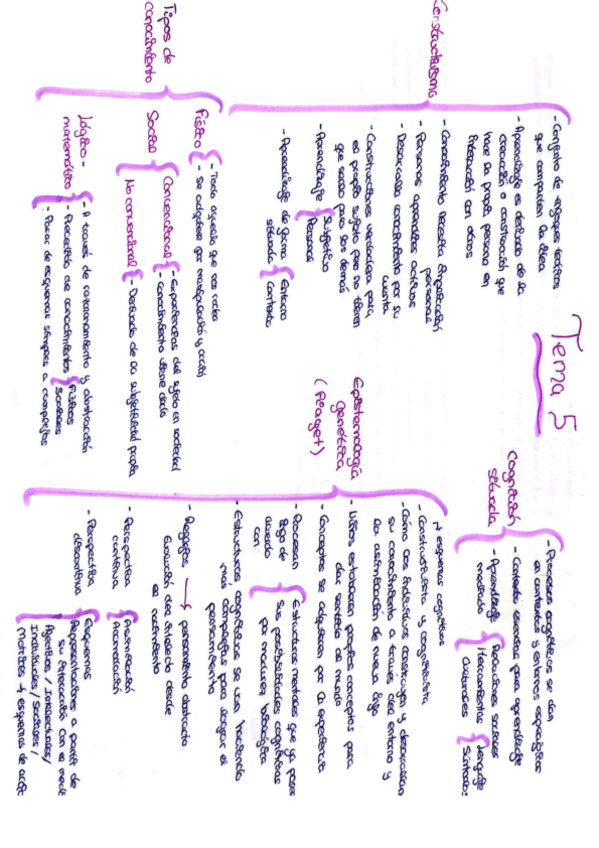 Tema 5
Constructivismo
- Conjunto de enfoques teóricos
que comparten la idea
- Aprendizaje es derivado de la
creación o construcción que
hace la propia persona en
interacción con otros
- Conocimiento necesita implicación
personal
- Personas aprendices activas
- Desarrolla conocimiento por su
cuenta
- Construcciones verdaderas para
el propio sujeto pero no tienen
que serlo para los demás
- Aprendizaje
Subjetivo
Personal
- Aprendizaje de forma
situada
Entorno
Contexto
Tipos de
conocimiento
Físico
- Todo aquello que nos rodea
- Se adquiere por manipulación y acción
Social
Convencional
- Experiencias del sujeto en sociedad
- Conocimiento viene dado
No convencional
- Derivado de la subjetividad propia
Lógico-
matemático
- A través de razonamiento y abstracción
- Precedido de conocimientos
Físicos
Sociales
- Pasar de esquemas simples a complejos
Cognición
situada
- Procesos cognitivos se dan
en contextos y entornos específicos
- Contexto esencial para aprendizaje
- Aprendizaje
mediado
Relaciones sociales
Herramientas
culturales
Lenguaje
Epistemología
genética
(Piaget)
esquemas cognitivos
- Constructivista y cognitivista
- Cómo los individuos construyen y desarrollan
su conocimiento a través del entorno y
la asimilación de nueva info
- Niños establecen propios conceptos para
dar sentido al mundo
- Conceptos se adquieren por la experiencia
- Procesan
info de
acuerdo
con
Estructuras mentales que ya posee
Sus posibilidades cognitivas
por madurez biológica
- Estructuras cognitivas se van haciendo
más complejas para lograr el
pensamiento
- Reflejos → pensamiento abstracto
Evolución del intelecto desde
el nacimiento
- Perspectiva
continua
Asimilación
Acomodación
- Perspectiva
discontinua
Esquemas
Representaciones a partir de
su interacción con el medio
/ Intelectuales /
Individuales / Sociales /
Motrices → esquemas de acción